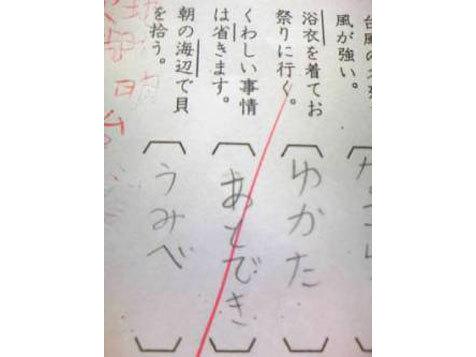 台風の
風が強い。
浴衣を着てお
祭りに行く。
ゆかた
くわしい事情
は省きます。
あとでき
朝の海辺で貝
を拾う。
うみべ